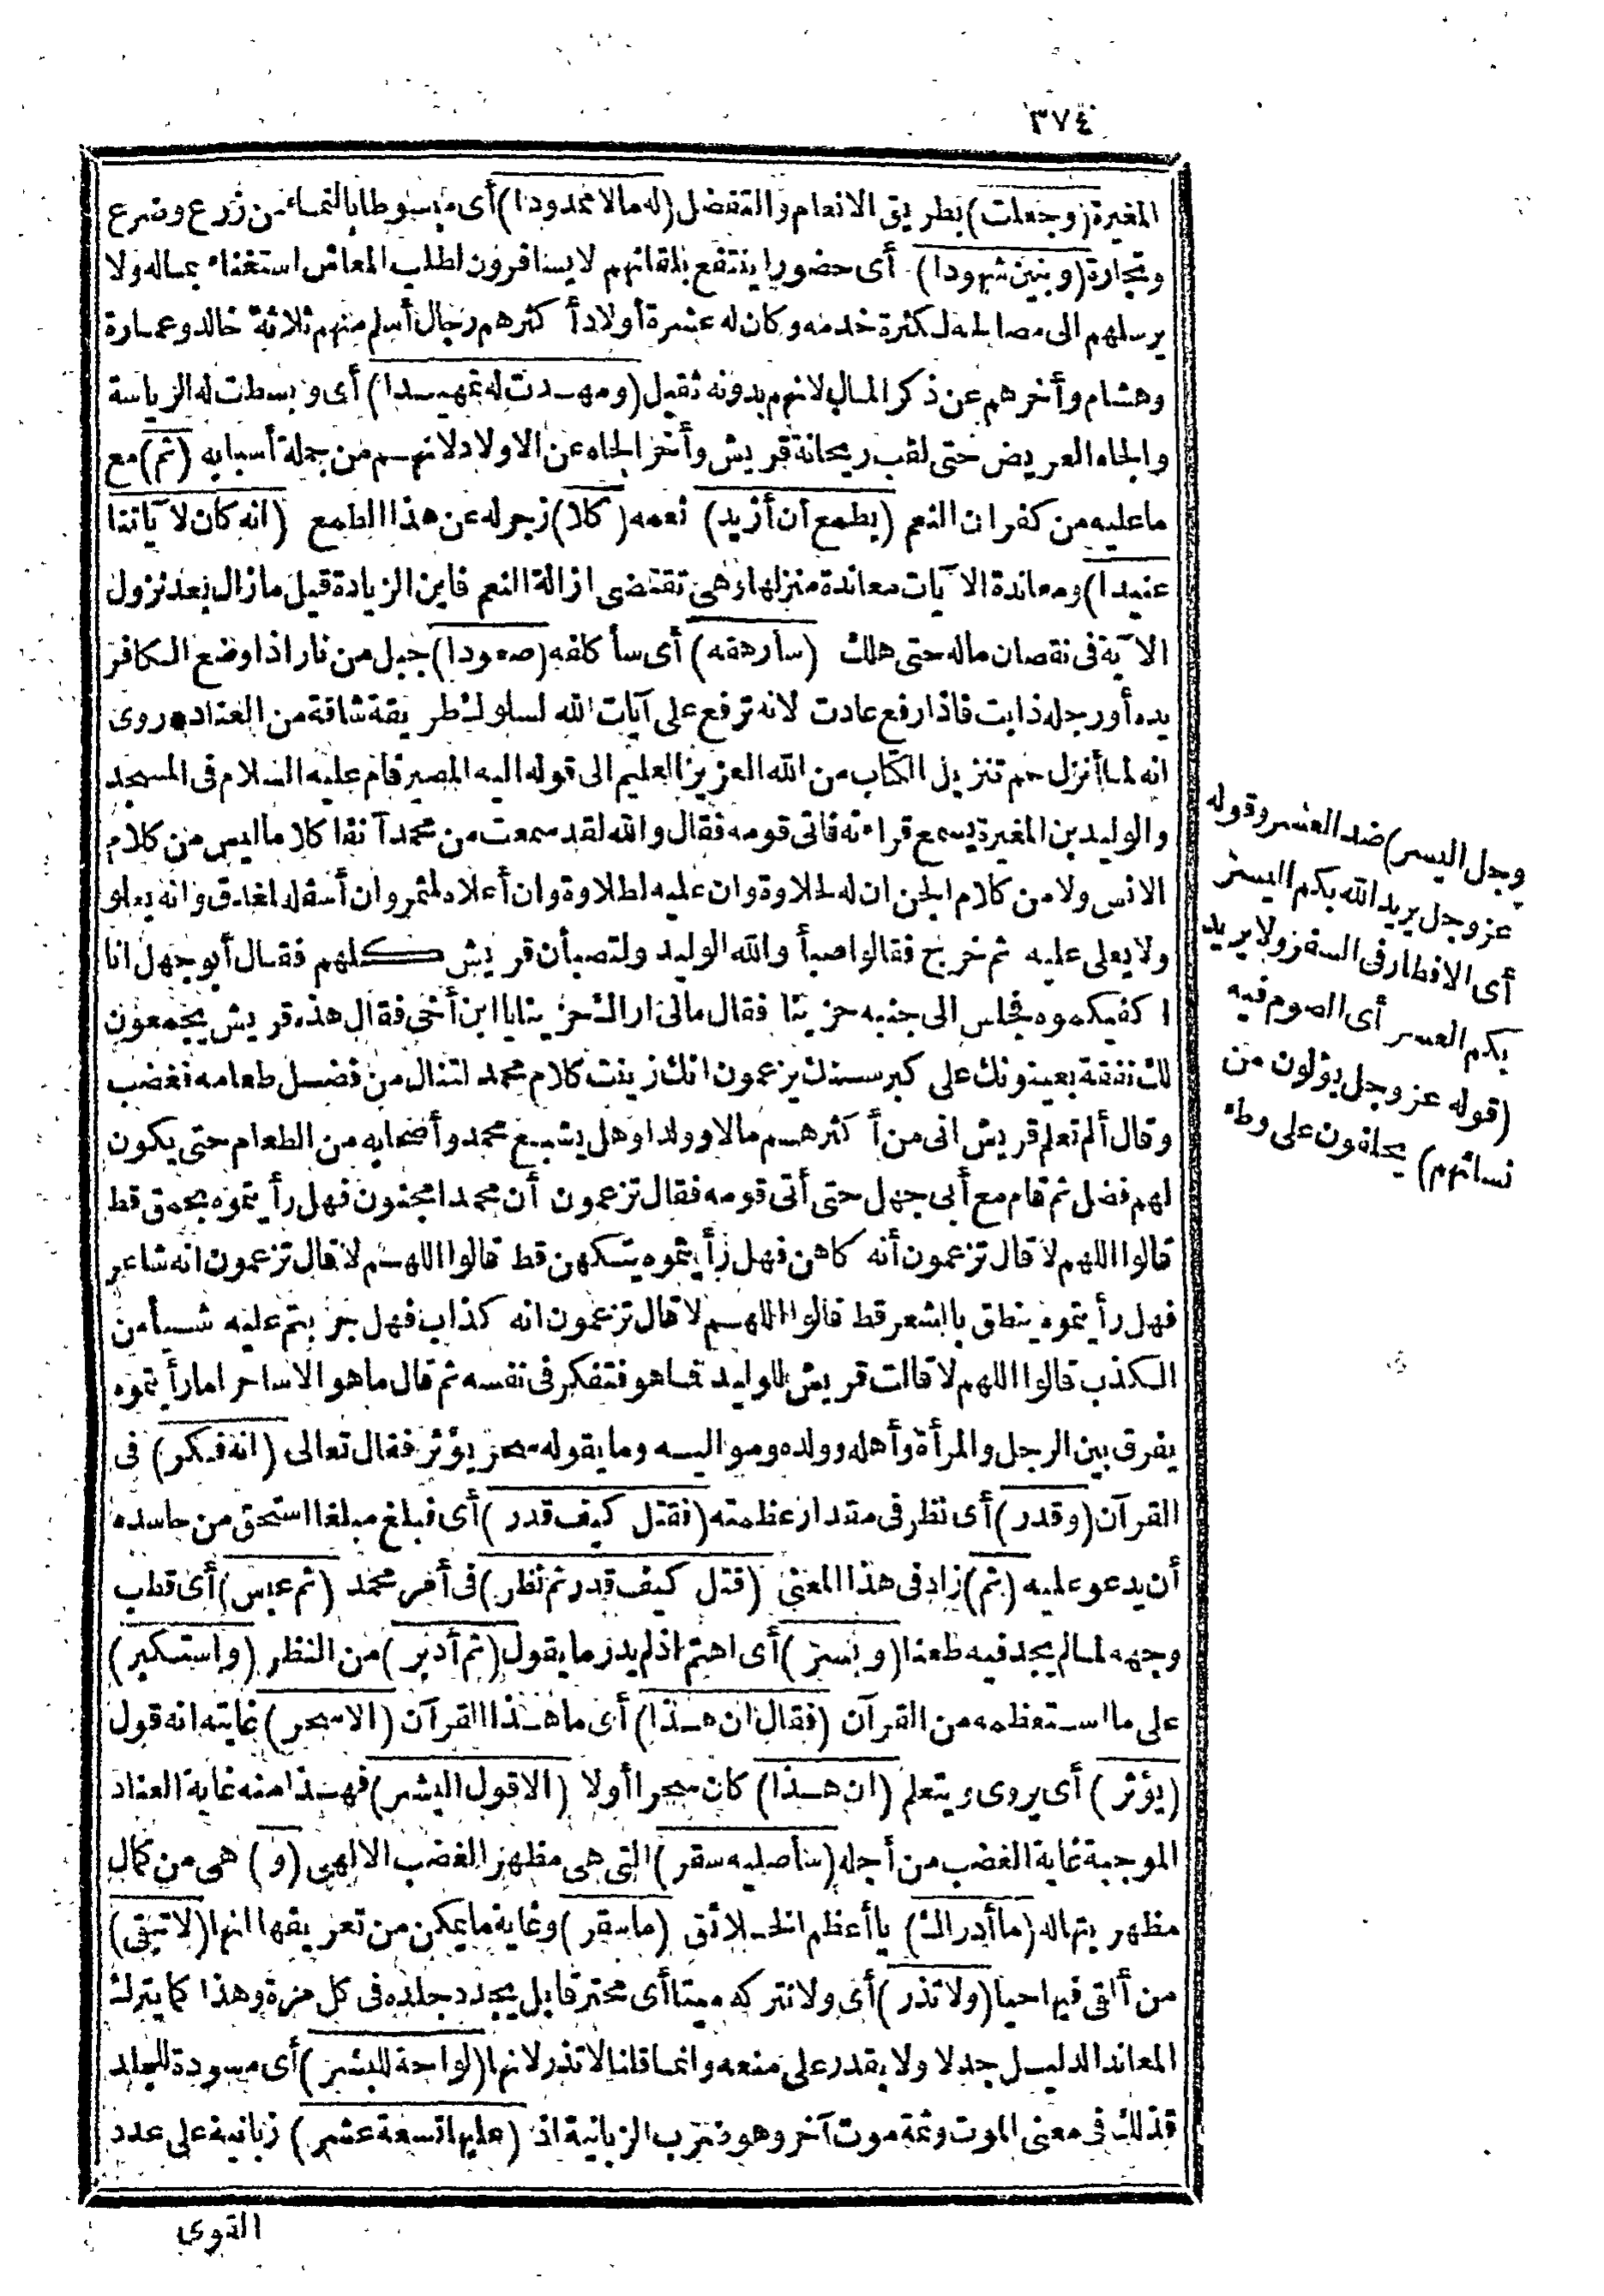 ٣٧٤
المغيرة (وجعلت) بطريق الانعام والتفضل (له مالا ممدودا) أى مبسوطا بالنماء من زرع وضرع
وتجارة (وبنين شهودا) أى حضورا ينتفع بلقائهم لا يسافرون لطلب المعاش استغناء بماله ولا
يرسلهم الى مصالحه لكثرة خدمه وكان له عشرة أولاد أكثرهم رجال أسلم منهم ثلاثة خالد وعمارة
وهشام وأخرهم عن ذكر المال لانهم بدونه ثقيل (ومهدت له تمهيدا) أى وبسطت له الرياسة
والجاه العريض حتى لقب ريحانة قريش وأخر الجاه عن الاولاد لانهم من جملة أسبابه (ثم) مع
ما عليه من كفران النعم (يطمع أن أزيد) نعمه (كلا) زجر له عن هذا الطمع (انه كان لآياتنا
عنيدا) ومعاندة الآيات معاندة منزلها وهى تقتضى ازالة النعم فاين الزيادة قيل مازال بعد نزول
الآية فى نقصان ماله حتى هلك (سأرهقه) أى سأكلفه (صعودا) جبل من نار اذا وضع الكافر
يده أو رجله ذابت فاذا رفع عادت لانه ترفع على آيات الله لسلوك طريقة شاقة من العناد روى
انه لما أنزل حم تنزيل الكتاب من الله العزيز العليم الى قوله اليه المصير قام عليه السلام فى المسجد
والوليد بن المغيرة يسمع قراءته فاتى قومه فقال والله لقد سمعت من محمد آنفا كلاما ليس من كلام
الانس ولا من كلام الجن ان له لحلاوة وان عليه لطلاوة وان أعلاه لمثمر وان أسفله لمغدق وانه يعلو
ولا يعلى عليه ثم خرج فقالوا صبأ والله الوليد ولتصبأن قريش كلهم فقال أبو جهل انا
اكفيكموه فجلس الى جنبه حزينا فقال مالى اراك حزينا يا ابن أخى فقال هذه قريش يجمعون
لك نفقة يعينونك على كبر سنك يزعمون انك زينت كلام محمد لتنال من فضل طعامه فغضب
وقال ألم تعلم قريش انى من أكثرهم مالا وولدا وهل يشبع محمد وأصحابه من الطعام حتى يكون
لهم فضل ثم قام مع أبى جهل حتى أتى قومه فقال تزعمون أن محمدا مجنون فهل رأيتموه يحمق قط
قالوا اللهم لا قال تزعمون أنه كاهن فهل رأيتموه يتكهن قط قالوا اللهم لا قال تزعمون انه شاعر
فهل رأيتموه ينطق بالشعر قط قالوا اللهم لا قال تزعمون انه كذاب فهل جربتم عليه شيأ من
الكذب قالوا اللهم لا قالت قريش للوليد فما هو فتفكر فى نفسه ثم قال ما هو الا ساحر اما رأيتموه
يفرق بين الرجل والمرأة وأهله وولده ومواليه وما يقوله سحر يؤثر فقال تعالى (انه فكر) فى
القرآن (وقدر) أى نظر فى مقدار عظمته (فقتل كيف قدر) أى فبلغ مبلغا استحق من حاسده
أن يدعو عليه (ثم) زاد فى هذا المعنى (قتل كيف قدر ثم نظر) فى أمر محمد (ثم عبس) أى قطب
وجهه لما لم يجد فيه طعنا (وبسر) أى اهتم اذ لم يدر ما يقول (ثم أدبر) من النظر (واستكبر)
على ما استعظمه من القرآن (فقال ان هذا) أى ما هذا القرآن (الا سحر) غايته انه قول
(يؤثر) أى يروى ويتعلم (ان هذا) كان سحرا أولا (الا قول البشر) فهذا منه غاية العناد
الموجبة غاية الغضب من أجله (سأصليه سقر) التى هى مظهر الغضب الالهى (و) هى من كمال
مظهريتها له (ما أدراك) يا أعظم الخلائق (ما سقر) وغاية ما يمكن من تعريفها انها (لا تبقى)
من ألقى فيها حيا (ولا تذر) أى ولا تتركه ميتا أى محترقا بل يجدد جلده فى كل مرة وهذا كما يترك
المعاند الدليل جدلا ولا يقدر على منعه وانما قلنا لا تذر لانها (لواحة للبشر) أى مسودة للجلد
فذلك فى معنى الموت وثمة موت آخر وهو ضرب الزبانية اذ (عليها تسعة عشر) زبانية على عدد
القوى
وجل اليسر) ضد العسر وقوله
عز وجل يريد الله بكم اليسر
أى الافطار فى السفر ولا يريد
بكم العسر أى الصوم فيه
(قوله عز وجل يؤلون من
نسائهم) يحلفون على وطء